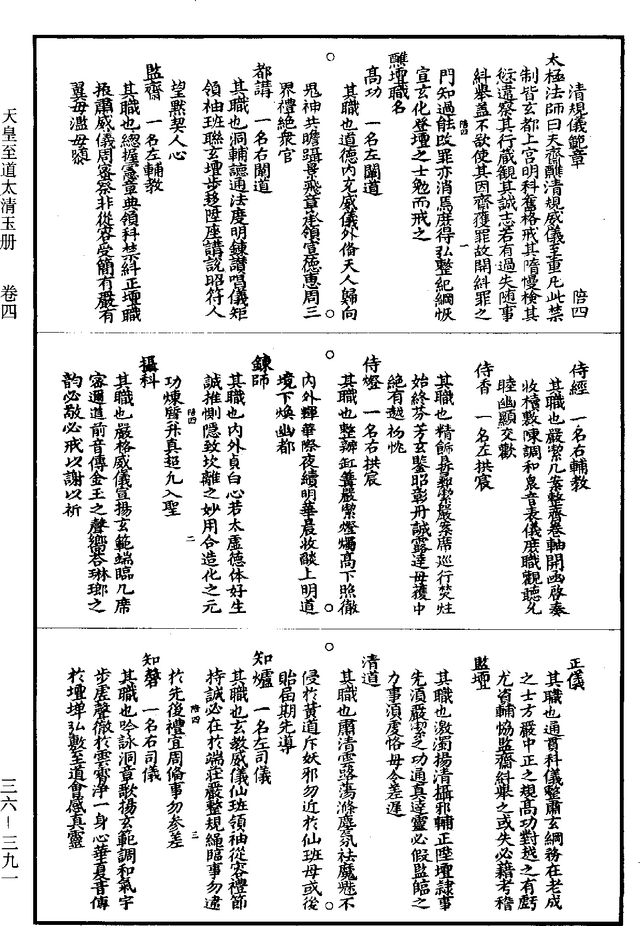 天皇至道太清玉册　卷四
三六—三九一
清規儀範章　陪四
太極法師曰天齋醮清規威儀至重凡此禁
制皆玄都上宮明科舊格戒其隋慢檢其
愆違察其行藏觀其誠志若有過失随事
糾舉蓋不欲使其因齋獲罪故開糾罪之
門知過能改罪亦消焉庶得弘整紀綱恢
宣玄化登壇之士勉而戒之
醮壇職名
高功　一名左闡道
其職也道德內充威儀外脩天人歸向
鬼神共瞻躡景飛章承領宣德惠周三
界禮絶衆官
都講　一名右闡道
其職也洞輔謳通法度明鍊讚唱儀矩
領袖班聯玄壇步移陞座講說昭符人
望默契人心
監齋　一名左輔教
其職也總握憲章典領科禁糾正壇職
振肅威儀周密察非從容受簡有嚴有
翼毋濫毋隳
侍經　一名右輔教
其職也嚴潔几案整齊卷軸開函啓奏
收櫝敷陳調和衆音表儀庶職觀聽允
睦幽顯交歡
侍香　一名左拱宸
其職也精飾鼎彝潔嚴案席巡行焚炷
始終芬芳玄鑒昭彰丹誠露達毋穫中
絶有愆初忱
侍燈　一名右拱宸
其職也整辦缸篝嚴潔燈燭高下照徹
內外輝華際夜續明華晨妝燄上明道
境下煥幽都
鍊師
其職也內外貞白心若太虛德体好生
誠推惻隠致坎離之妙用合造化之元
功煉質升真超凡入聖
攝科
其職也嚴格威儀宣揚玄範端臨几席
密通道前音傳金玉之聲嚮荅琳瑯之
韵必敬必戒以謝以祈
正儀
其職也通貫科儀整肅玄綱務在老成
之士方嚴中正之規高功對越之有虧
尤資輔協監齋糾舉之或失必藉考稽
監壇
其職也激濁揚清攝邪輔正陞壇隷事
先須嚴潔之功通真達靈必假監臨之
力事須虔恪毋令差遲
清道
其職也肅清雲路蕩滌塵氛祛魔魅不
侵於黃道斥妖邪勿近於仙班毋或後
貽局期先導
知爐　一名左司儀
其職也玄教威儀仙班領袖從容禮節
持誠必在於端莊嚴整規繩臨事勿違
於先後禮宜周僃事勿參差
知磬　一名右司儀
其職也吟詠洞章歌揚玄範調和氣宇
步虚聲徹於雲霄淨一身心華夏音傳
於壇墠弘敷至道會感真靈